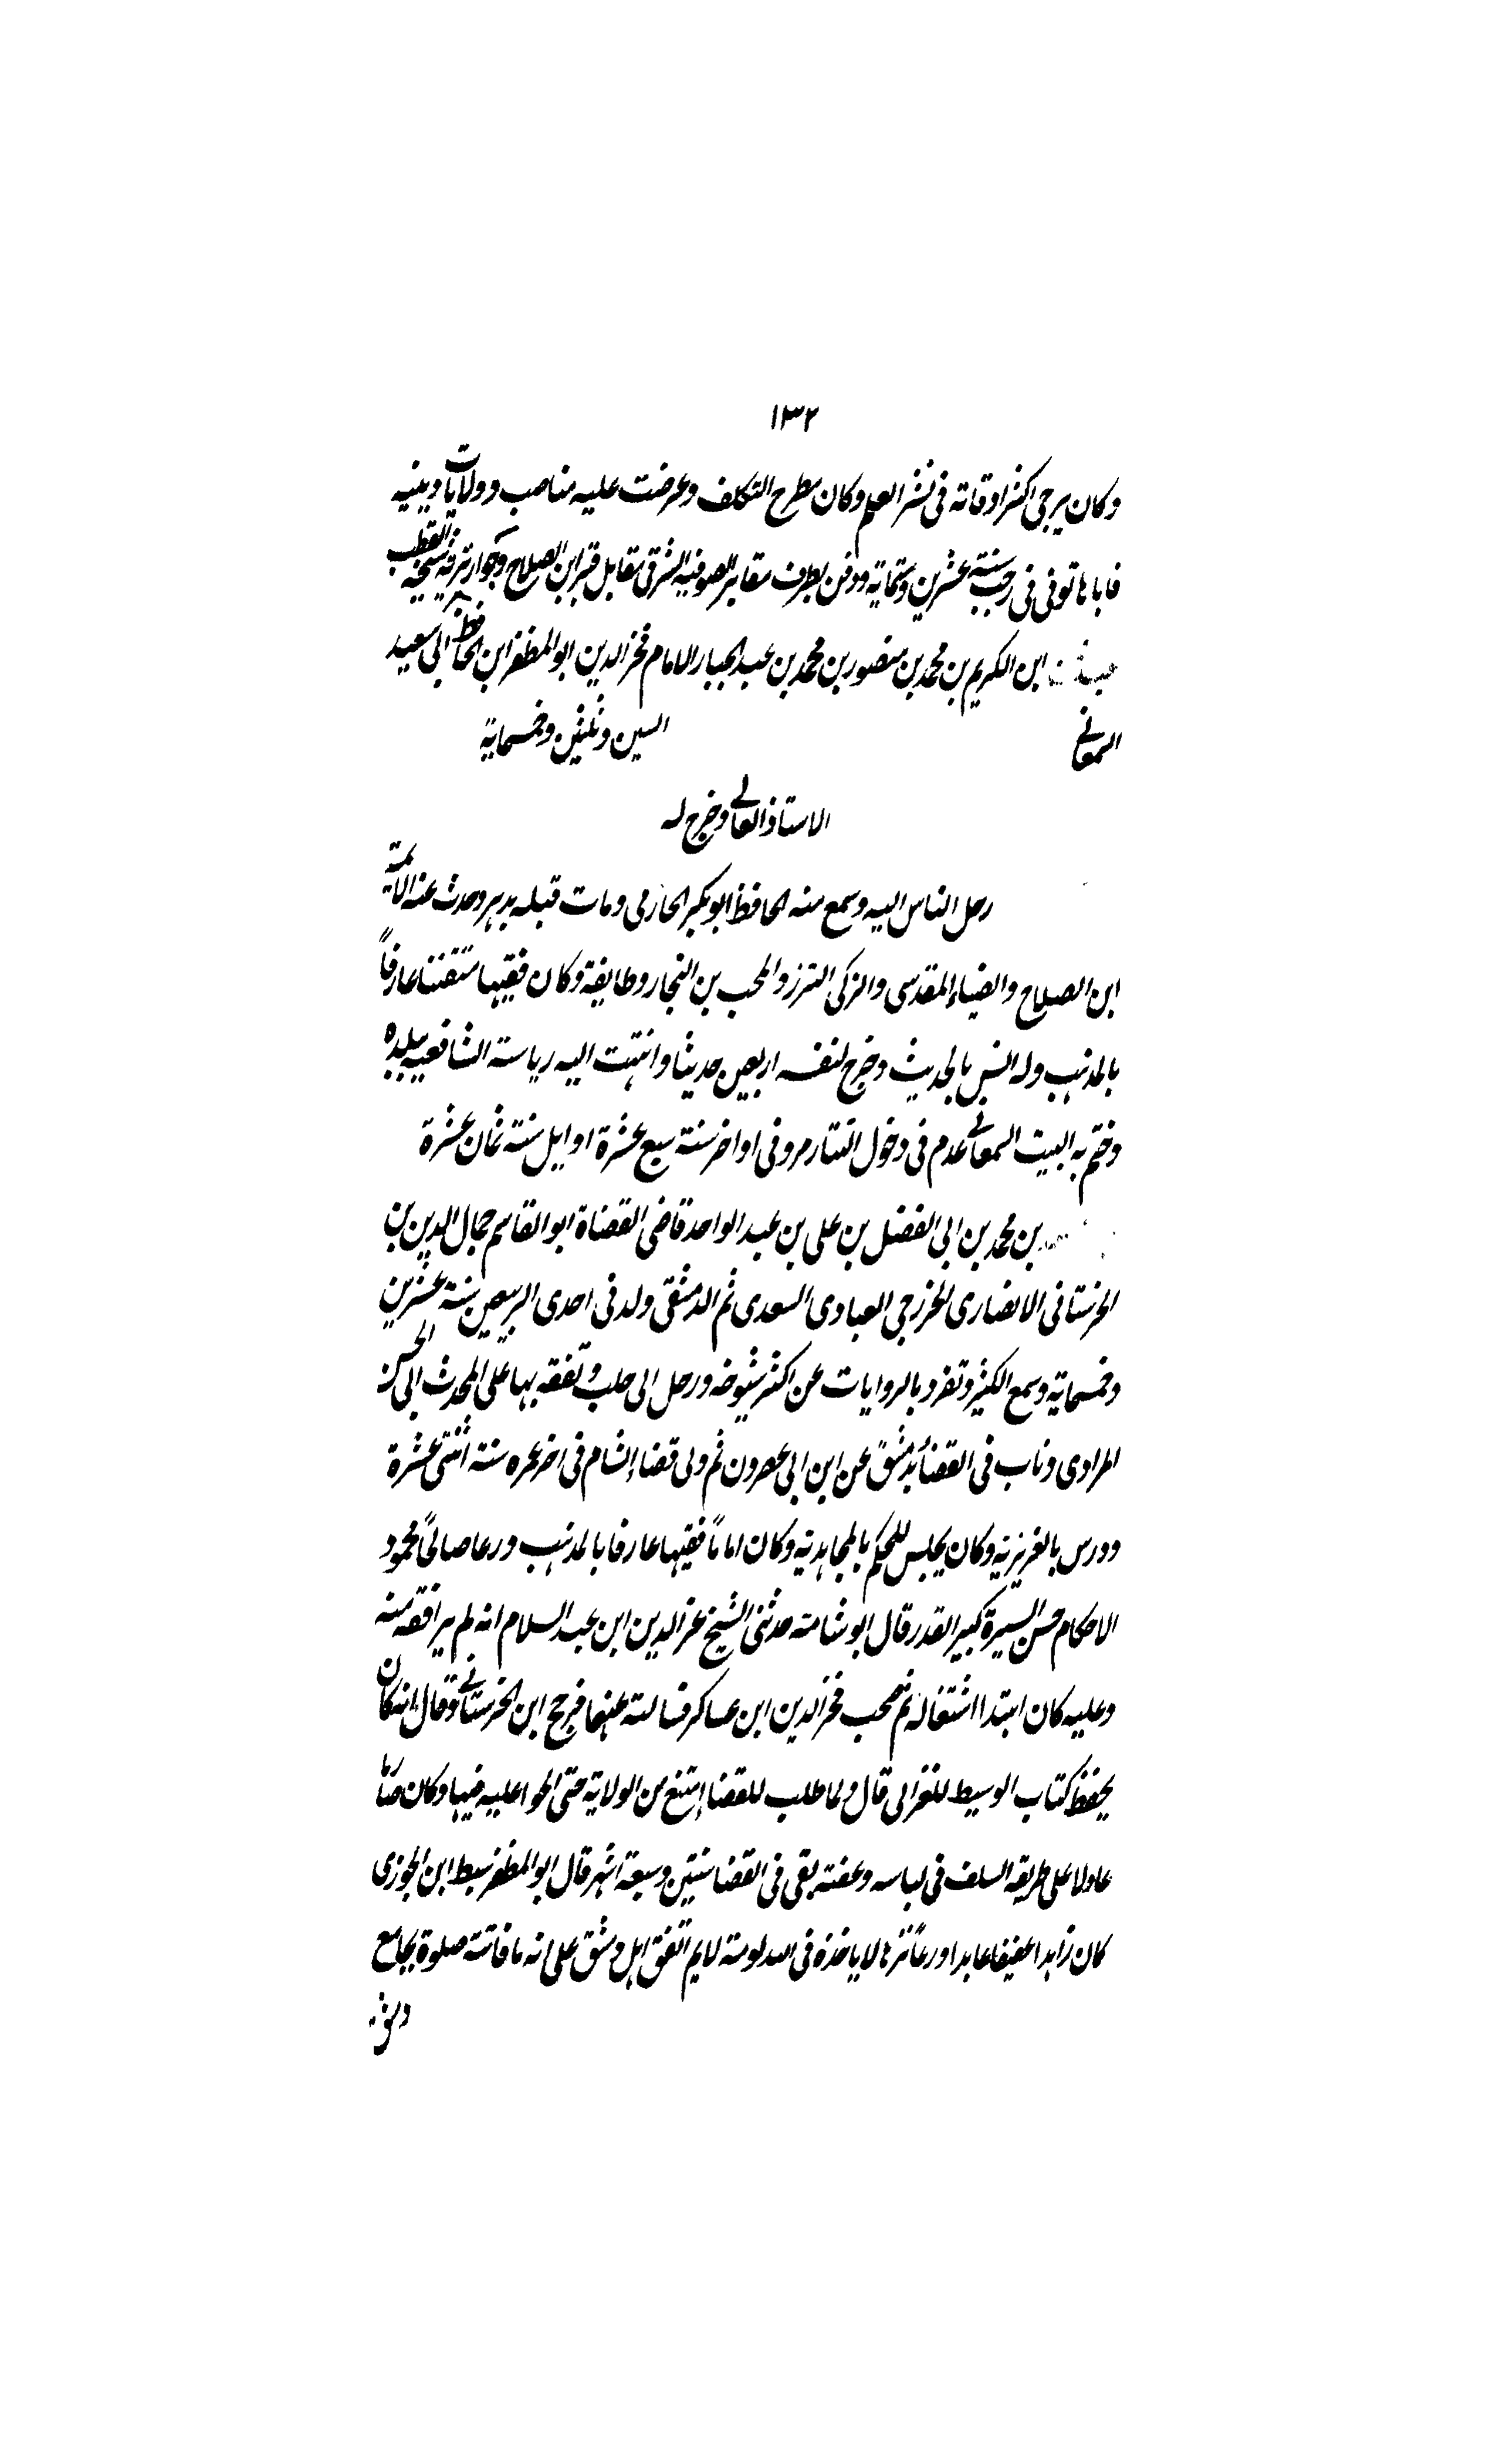 ١٣٢
وكان يرجى اكثر اوقاته فى نشر العلم وكان مطرح التكلف وعرضت عليه مناصب وولايات دينيه
فاباها توفى فى رجب سنة عشرين وستماية ودفن بطرف مقابر الصوفيه الشرقى مقابل قبر ابن الصلاح وجوار تربة شيخه القطب
ابن الكريم بن محمد بن منصور بن محمد بن عبد الجبار الامام فخر الدين ابو المظفر ابن الحافظ ابى سعيد
السمعانے السين وثلثين وخمسماية
الاستاذ العالے وخرج له
رحل الناس اليه وسمع منه الحافظ ابو بكر الحازمى ومات قبله بدهر وحدث عنه الائمة
ابن الصلاح والضياء المقدسى والزكى البرز والمحب بن النجار وطايفة وكان فقيها متفننا عارفاً
بالمذهب وله انس بالحديث وخرج لنفسه اربعين حديثا وانتهت اليه رياسة الشافعيه ببلده
وختم به البيت السمعانے عدم فى دخول التتار مرو فى اواخر سنة سبع عشرة اوايل سنة ثمان عشرة
بن محمد بن ابى الفضل بن على بن عبد الواحد قاضى القضاة ابو القاسم جمال الدين بن
الحرستانى الانصارى الخزرجى العبادى السعدى ثم الدمشقى ولد فى احدى الربيعين سنة عشرين
وخمسماية وسمع الكثير وتفرد بالروايات عن اكثر شيوخه ورحل الى حلب وتفقه بها على المحدث ابى الحسن
المرادى وناب فى القضاء بدمشق عن ابن ابى عصرون ثم ولى قضاء الشام فى اخر عمره سنة اثنتى عشرة
ودرس بالعزيزيه وكان يجلس للحكم بالمجاهدية وكان اماماً فقيها عارفا بالمذهب ورعا صالحاً محمود
الاحكام حسن السيرة كبير القدر قال ابو شامة حدثنى الشيخ عز الدين ابن عبد السلام انه لم ير افقه منه
وعليه كان ابتدا اشتغاله ثم صحب فخر الدين ابن عساكر فسالته عنهما فرجح ابن الحرستانے وقال انه كان
يحفظ كتاب الوسيط للغزالى قال ولما طلب للقضاء امتنع من الولاية حتى الحوا عليه فيها وكان صامتا
عادلا على طريقة السلف فى لباسه وعفته بقى فى القضا سنتين وسبعة اشهر قال ابو المظفر سبط ابن الجوزى
كان زاهدا عفيفا عابدا ورعاً نزها لا ياخذه فى الله لومة لايم اتفق اهل دمشق على انه ما فاتته صلوة بجامع
دمشق